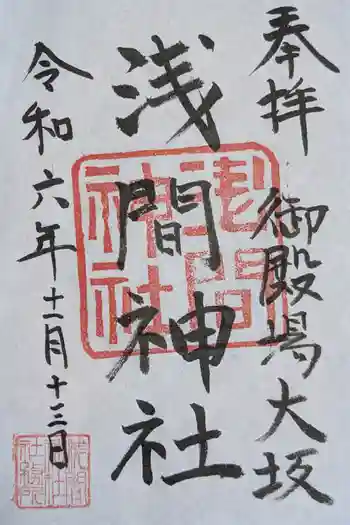 奉拝 御殿場大坂
浅間神社
令和六年十一月十三日
浅間神社